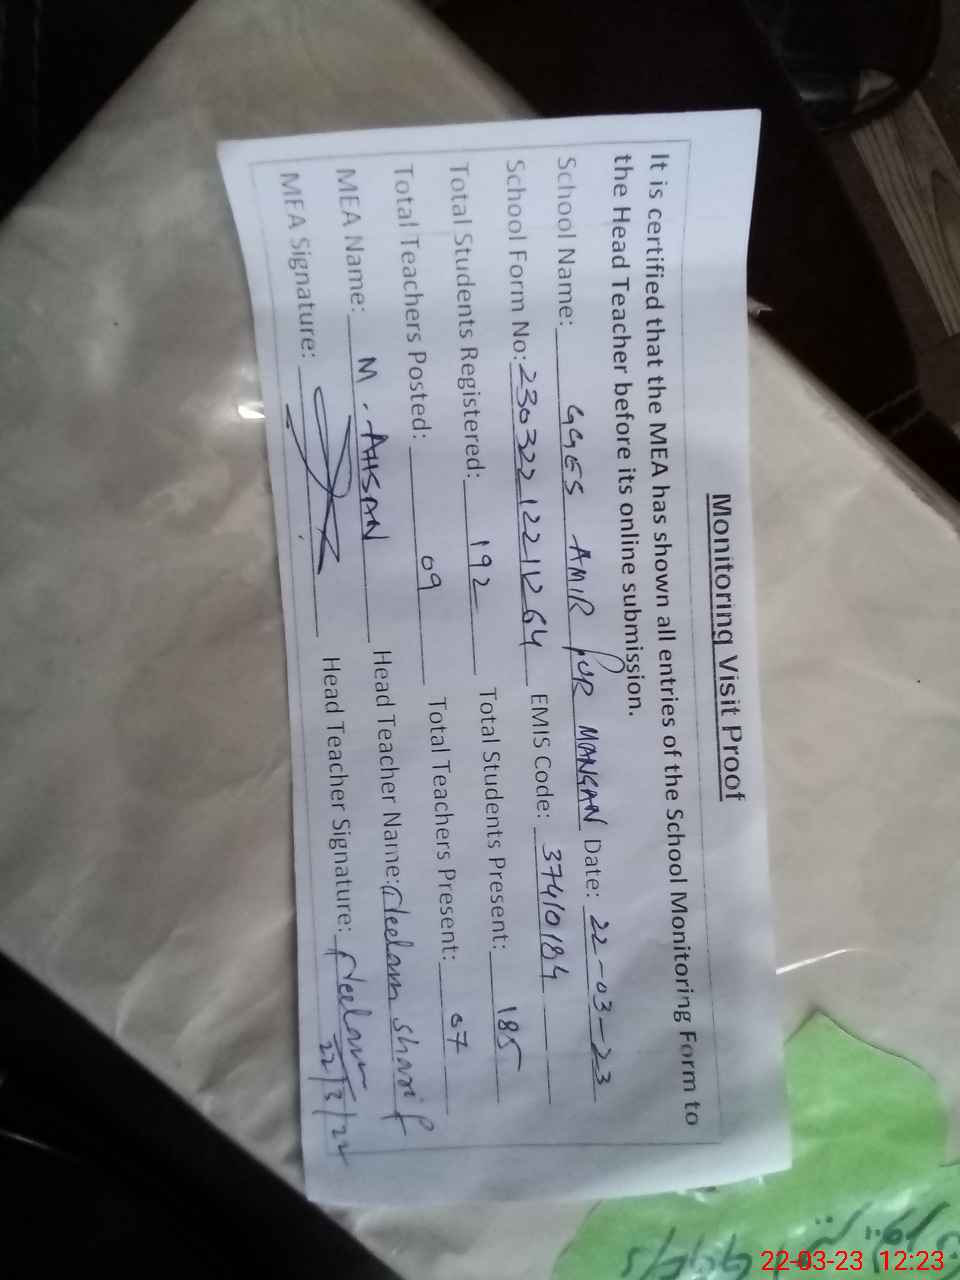 Monitoring Visit Proof
It is certified that the MEA has shown all entries of the School Monitoring Form to
the Head Teacher before its online submission.
School Name: GGES AMIR PUR MANGAN Date: 22-03-23
School Form No: EMIS Code: 37410184
Total Students Registered: 192 Total Students Present: 185
Total Teachers Posted: 09 Total Teachers Present: 07
MEA Name: M. AHSAN Head Teacher Name: Neelam Sharif
MEA Signature: Head Teacher Signature: Neelam
22/3/22
22-03-23 12:23